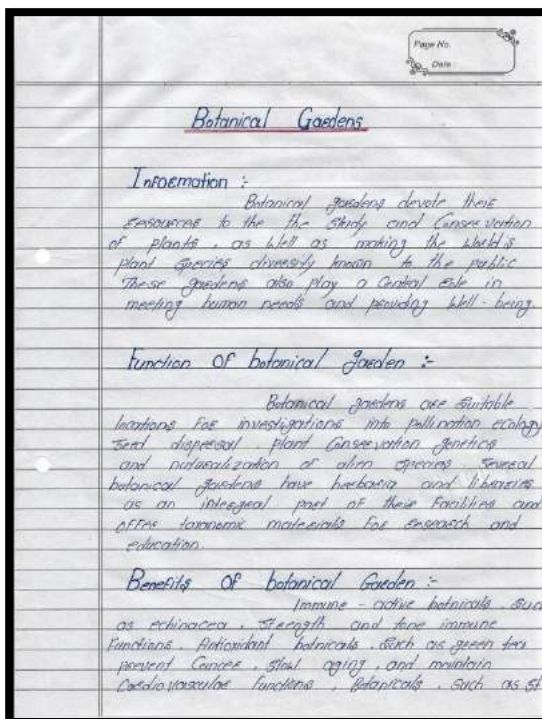 Page No.
Date
Botanical Gardens
Information :-
Botanical gardens devote their
resources to the the study and Conservation
of plants , as well as making the world's
plant species diversity known to the public
These gardens also play a Central role in
meeting human needs and providing well - being.
Function Of botanical garden :-
Botanical gardens are suitable
locations For investigations into pollination ecology
seed dispersal . plant Conservation genetics
and naturalization of alien species . several
botanical gardens have herbaria and libraries
as an integral part of their Facilities and
offer taxonomic materials For research and
education.
Benefits Of botanical Garden :-
Immune - active botnicals . such
as echinacea , strength and tone immune
Functions . Antioxidant botnicals . such as green tea
prevent Cancer , slow aging , and maintain
Cardiovascular Functions , Botanicals , such as st